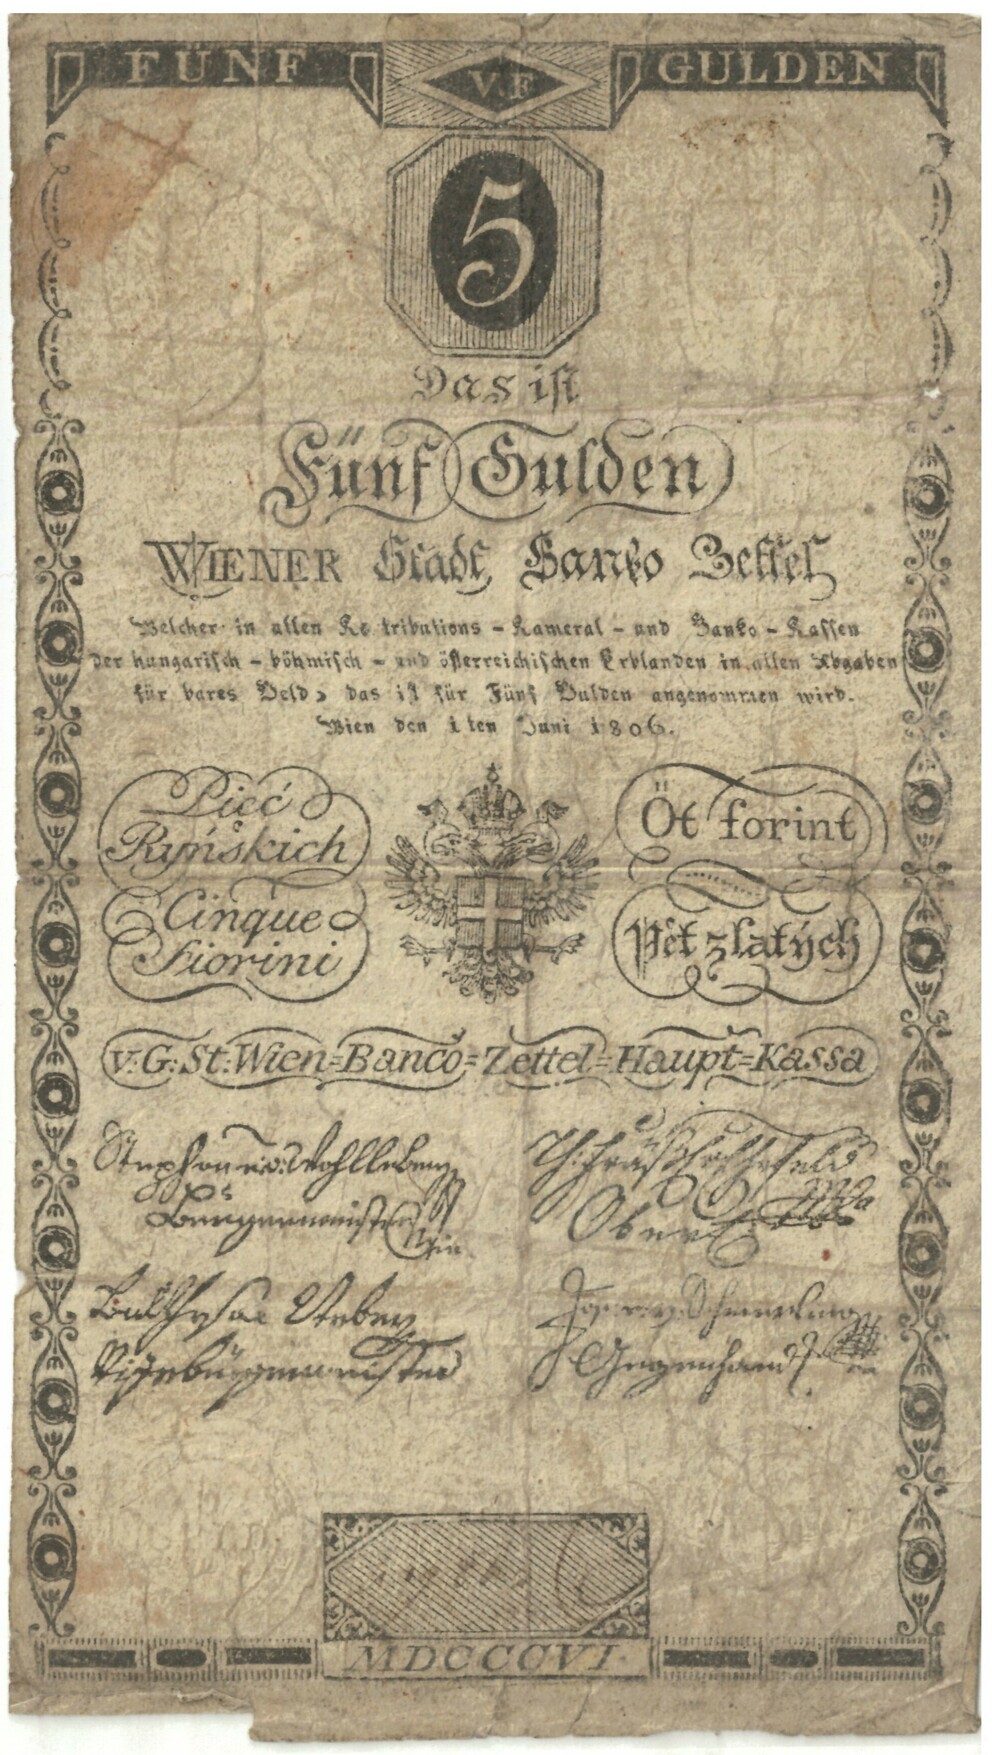 FÜNF V.F GULDEN
5
Das iſt
Fünf Gulden
WIENER Stadt Banko Zettel
Welcher in allen Kontributions - Kameral - und Banko - Kaſſen
der hungariſch - böhmiſch - und öſterreichiſchen Erblanden in allen Abgaben
für bares Geld, das iſt für Fünf Gulden angenommen wird.
Wien den 1ten Juni 1806.
Pięć
Ryńskich
Cinque
Fiorini
Öt forint
Pět zlatých
v: G: St: Wien=Banco=Zettel=Haupt=Kassa
Stephan v: Wohlleben
Burgermeister
Ober
Vizebürgermeister
Gegenhand
MDCCCVI